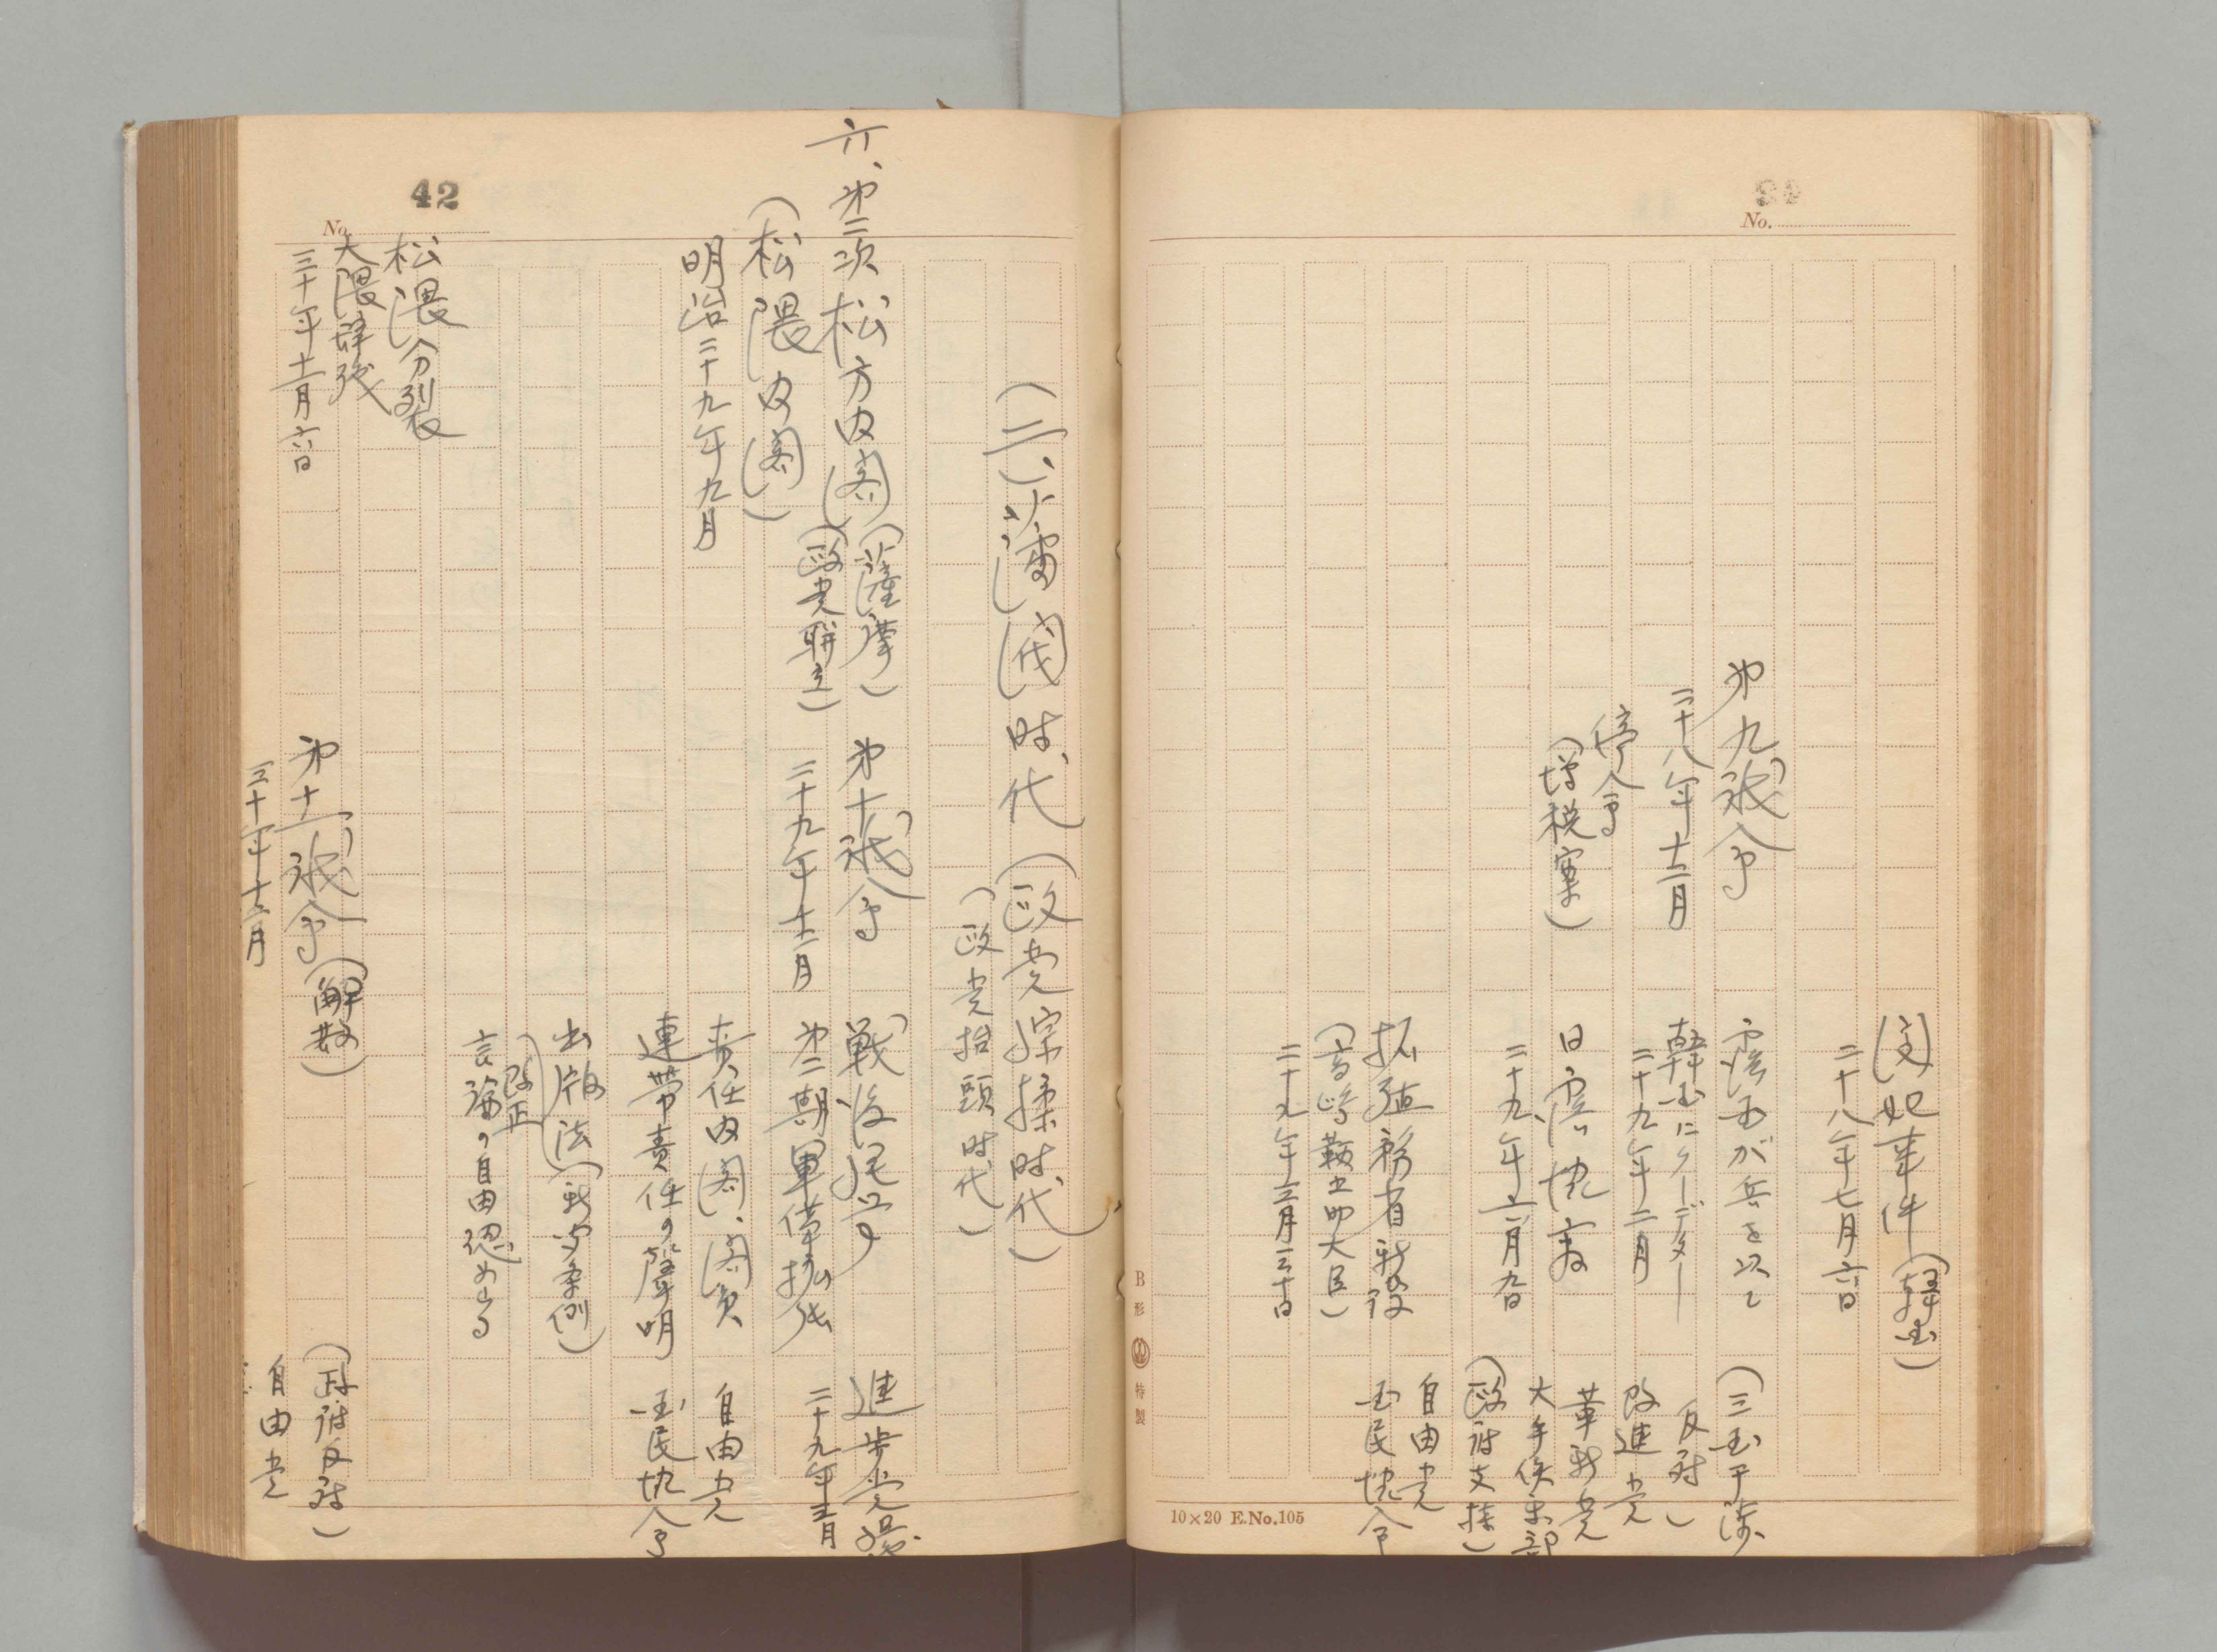 No.
第九議会
二十八年十二月
停会
(増税案)
閔妃事件(韓国)
二十八年七月六日
露西が兵を以て
韓国にクーデター
二十九年二月
日露協商
二十九年六月九日
拓殖務省新設
(高嶋鞆之助大臣)
二十九年三月三十日
(三国干渉
反対)
改進党
革新党
大手倶楽部
(政府支持)
自由党
国民協会
10×20 E.No.105
B形 特製
42
No.
(二、)藩閥時代(政党操揉時代)
(政党抬頭時代)
六、第二次松方内閣(薩摩)
(政党聯立)
(松隈内閣)
明治二十九年九月
松隈分裂
大隈辞職
三十年十一月六日
第十議会
二十九年十二月
第十一議会(解散)
三十年十二月
戦後経営
第二期軍備拡張
責任内閣、閣員
連帯責任の聲明
出版法(新聞条例)
改正
言論の自由認める
進歩党
二十九年三月
自由党
国民協会
(政府反対)
自由党